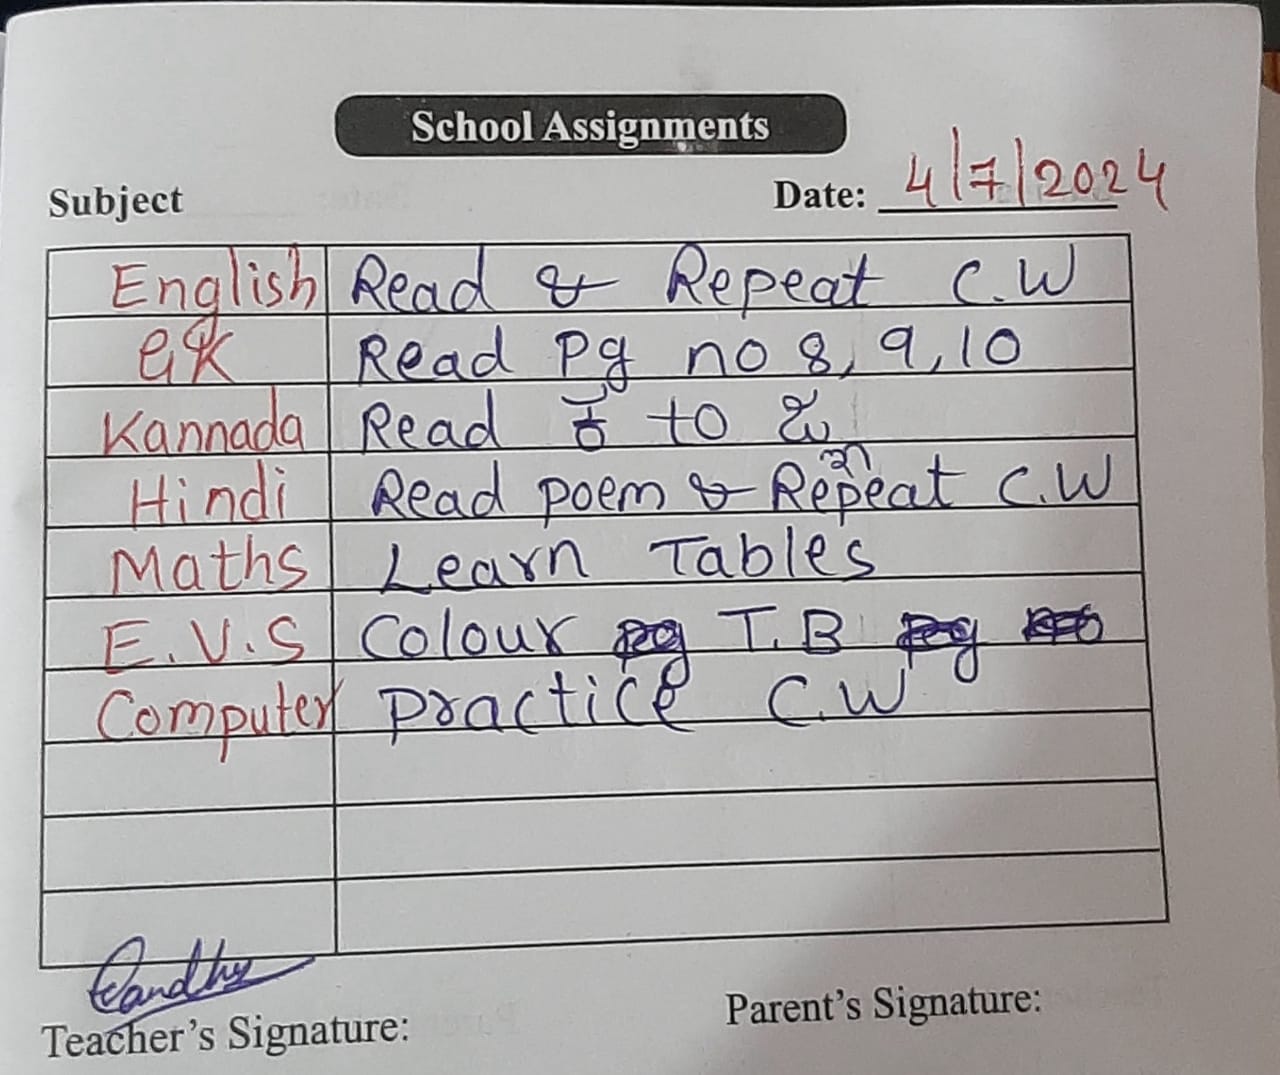 School Assignments
Subject Date: 4/7/2024
English Read & Repeat C.W
GK Read Pg no 8, 9, 10
Kannada Read ಕ to
Hindi Read poem & Repeat C.W
Maths Learn Tables
E.V.S Colour T.B
Computer Practice C.W
Teacher's Signature: Parent's Signature: